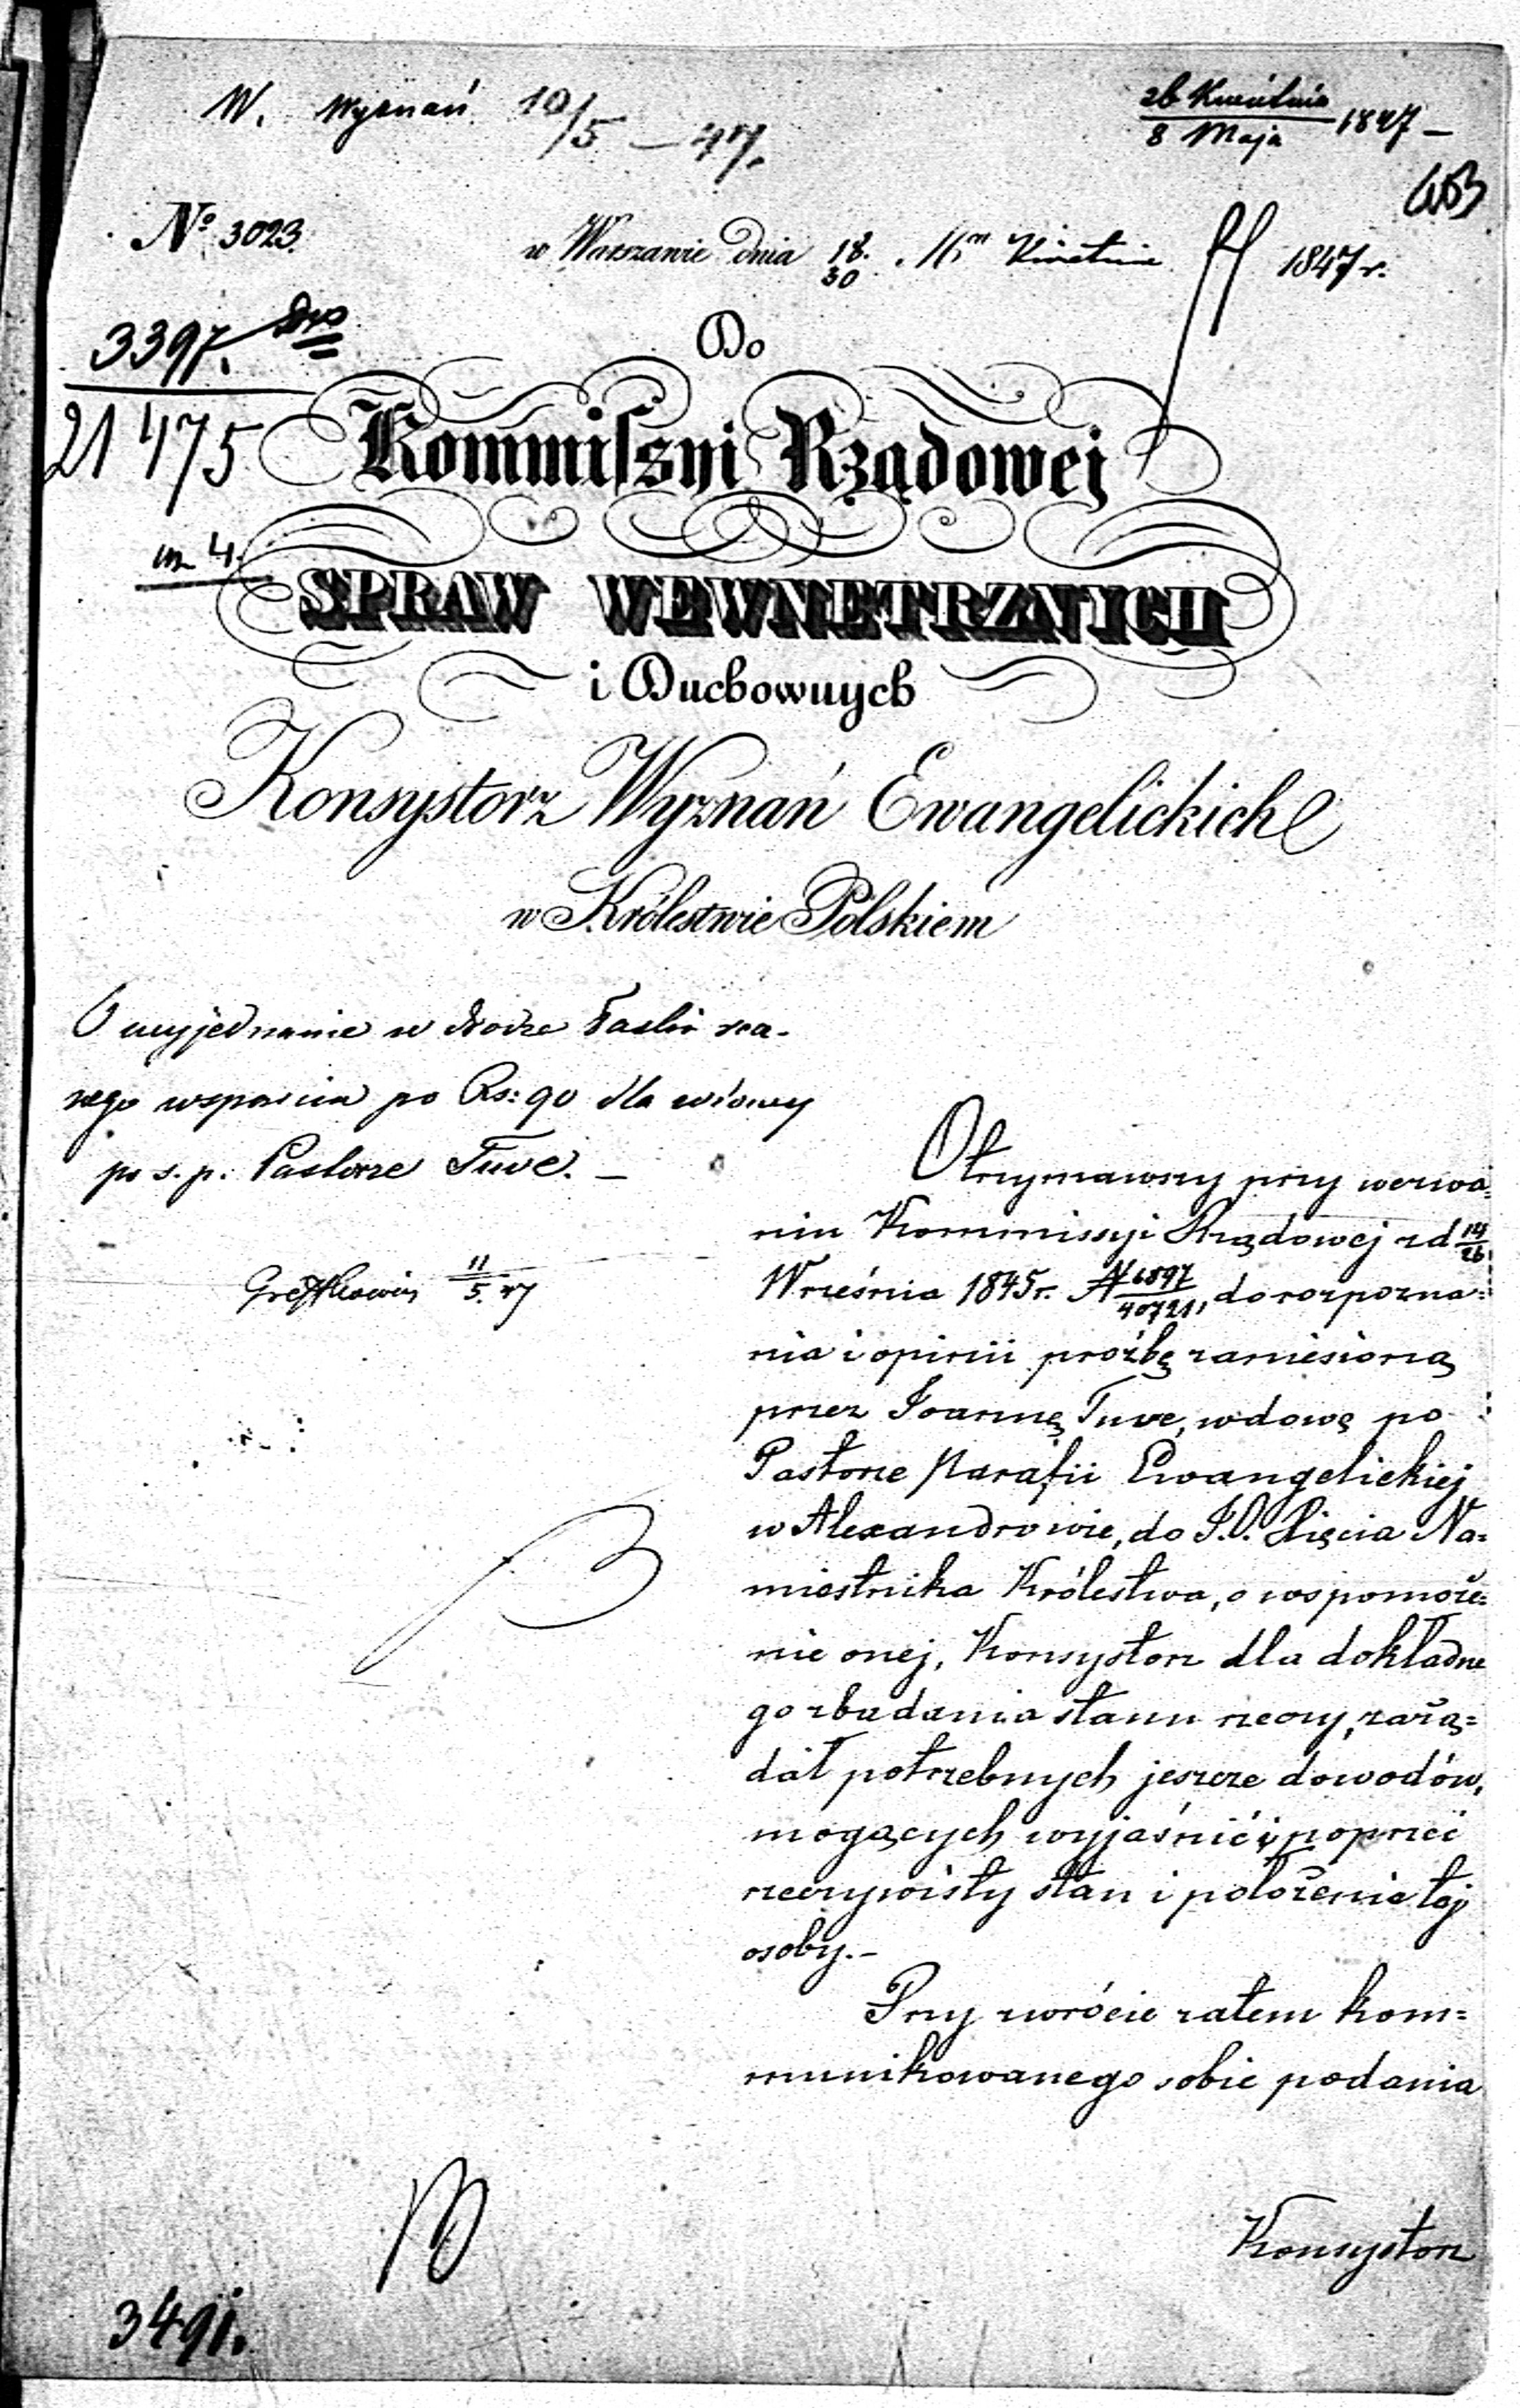 W. Wyznań 10/5 – 47.
26 Kwietnia
8 Maja 1847 –
No 3023
w Warszawie dnia 18./30 Mca Kwietnia 1847 r.
3397.
21475
Do
Kommissyi Rządowej
SPRAW WEWNETRZNYCH
i Duchownych
Konsystorz Wyznań Ewangelickich
w Królestwie Polskiem
O wyjednanie w drodze łaski
wsparcia po Rs: 90 dla wdowy
po s. p. Pastorze Tuve. –
11/5. 47
Otrzymawszy przy wezwa=
niu Kommissyi Rządowej z d 14/26
Września 1845 r. N 6897/40721, do rozpozna=
nia i opinii proźbę zaniesioną
przez Joannę Tuve, wdowę po
Pastorze Parafii Ewangelickiej
w Alexandrowie, do J.O. Xięcia Na=
miestnika Królestwa, o wspomoże=
nie onej, Konsystorz dla dokładne
go zbadania stanu rzeczy, zażą=
dał potrzebnych jeszcze dowodów,
mogących wyjaśnić i poprzeć
rzeczywisty stan i położenie tej
osoby. –
Przy zwrócie zatem kom=
munikowanego sobie podania
Konsystorz
3491.